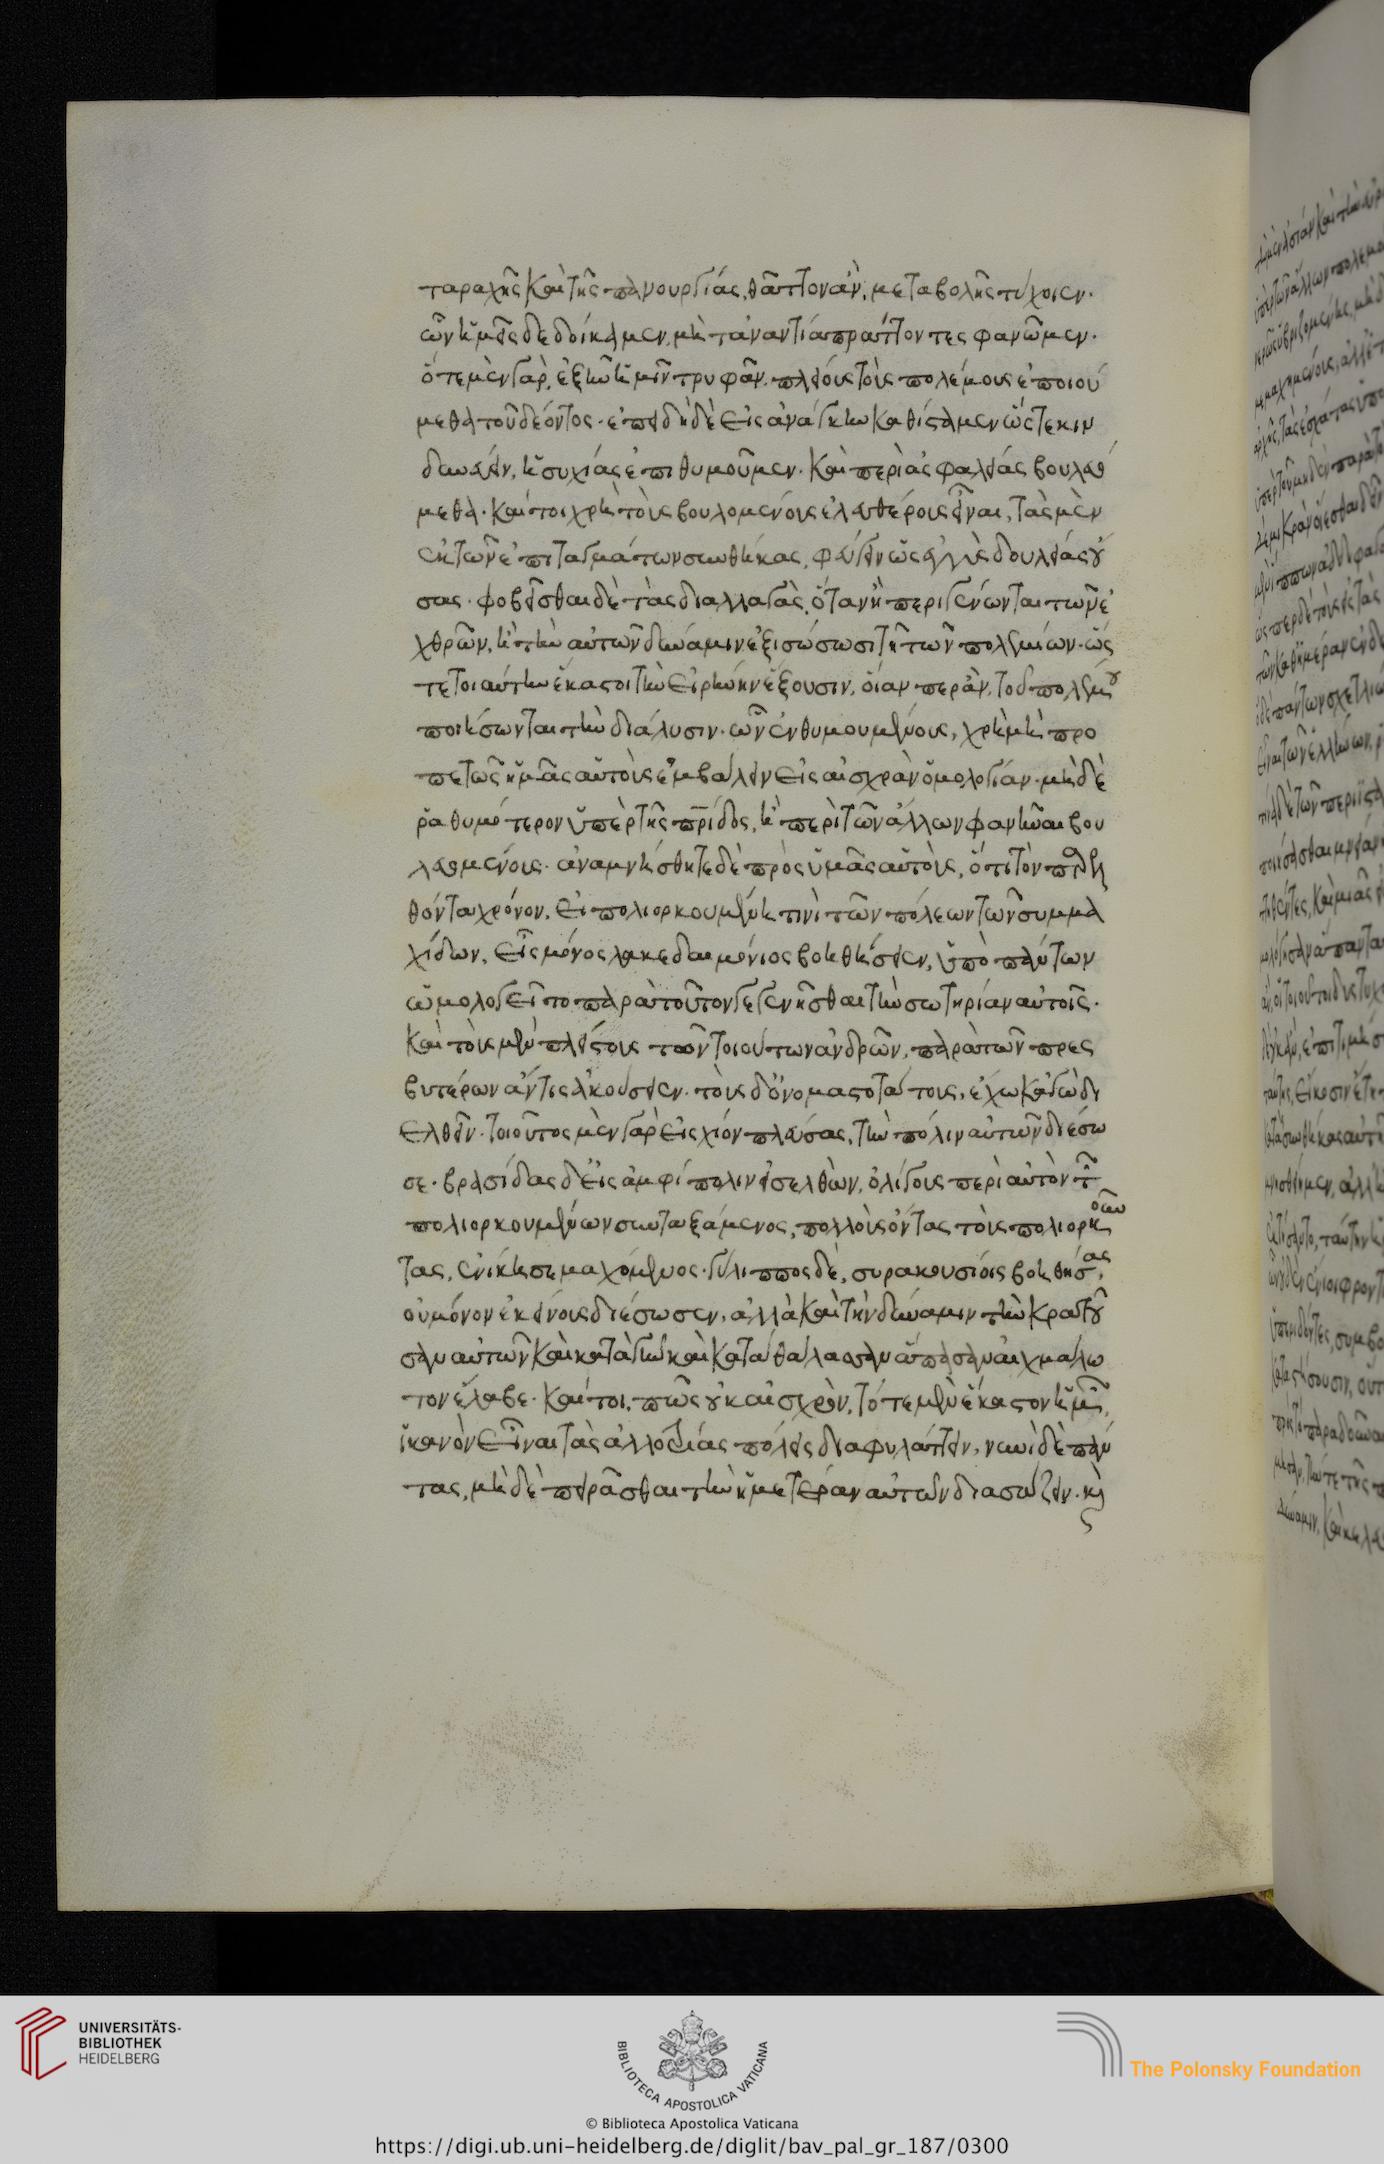 ταραχῆς καὶ τῆς πανουργίας, θᾶττον ἂν, μεταβολῆς τύχοιεν.
ὧν ἡμεῖς δεδοίκαμεν, μὴ τἀναντία πράττοντες φανῶμεν.
ὅτε μὲν γὰρ, ἐξῆν ἡμῖν τρυφᾶν. πλείους τοὺς πολέμους ἐποιού
μεθα τοῦ δέοντος. ἐπειδὴ δὲ εἰς ἀνάγκην καθίσταμεν ὥστε κιν
δυνεύειν, ἡσυχίας ἐπιθυμοῦμεν. καὶ περὶ ἀσφαλείας βουλευό
μεθα. καίτοι χρὴ τοὺς βουλομένους ἐλευθέρους εἶναι, τὰς μὲν
ἐκ τῶν ἐπιταγμάτων συνθήκας, φεύγειν ὡς ἐγγὺς δουλείας οὔ
σας. φοβεῖσθαι δὲ τὰς διαλλαγὰς, ὅταν ἢ περιγένωνται τῶν ἐ
χθρῶν, ἢ τὴν αὑτῶν δύναμιν ἐξισώσωσι τῇ τῶν πολεμίων. ὡς
τε τοιαύτην ἕκαστοι τὴν εἰρήνην ἕξουσιν, οἵαν περ ἂν, τοῦ πολέμου
ποιήσωνται τὴν διάλυσιν. ὧν ἐνθυμουμένους, χρὴ μὴ προ
πετῶς ἡμᾶς αὐτοὺς ἐμβαλεῖν εἰς αἰσχρὰν ὁμολογίαν. μὴ δὲ
ῥαθυμότερον ὑπὲρ τῆς πρίδος, ἢ περὶ τῶν ἄλλων φανῆναι βου
λευομένους. ἀναμνήσθητε δὲ πρὸς ὑμᾶς αὐτοὺς, ὅτι τὸν παρελη
θόντα χρόνον, εἰ πολιορκουμένῃ τινὶ τῶν πόλεων τῶν συμμα
χίδων, εἷς μόνος λακεδαιμόνιος βοηθήσειεν, ὑπὸ πάντων
ὡμολογεῖτο παρὰ τοῦτον γεγενῆσθαι τὴν σωτηρίαν αὐτοῖς.
καὶ τοὺς μὲν πλείστους τῶν τοιούτων ἀνδρῶν, παρὰ τῶν πρες
βυτέρων ἄν τις ἀκούσειεν. τοὺς δ' ὀνομαστοτάτους, ἔχω κἀγὼ δι
ελθεῖν. τοιοῦτος μὲν γὰρ εἰς χίον πλεύσας, τὴν πόλιν αὐτῶν διέσω
σε. βρασίδας δ' εἰς ἀμφίπολιν εἰσελθὼν, ὀλίγους περὶ αὑτὸν τῶν
πολιορκουμένων συνταξάμενος, πολλοὺς ὄντας τοὺς πολιορκοῦν
τας, ἐνίκησε μαχόμενος. γύλιππος δὲ, συρακουσίοις βοηθήσας,
οὐ μόνον ἐκείνους διέσωσεν, ἀλλὰ καὶ τὴν δύναμιν τὴν κρατοῦ
σαν αὐτῶν καὶ κατὰ γῆν καὶ κατὰ θάλασσαν ἅπασαν αἰχμάλω
τον ἔλαβε. καίτοι, πῶς οὐκ αἰσχρὸν, τότε μὲν ἕκαστον ἡμῶν,
ἱκανὸν εἶναι τὰς ἀλλοτρίας πόλεις διαφυλάττειν, νυνὶ δὲ πάν
τας, μὴ δὲ πειρᾶσθαι τὴν ἡμετέραν αὐτῶν διασώζειν. καὶ
UNIVERSITÄTS-
BIBLIOTHEK
HEIDELBERG
BIBLIOTECA APOSTOLICA VATICANA
The Polonsky Foundation
© Biblioteca Apostolica Vaticana
https://digi.ub.uni-heidelberg.de/diglit/bav_pal_gr_187/0300